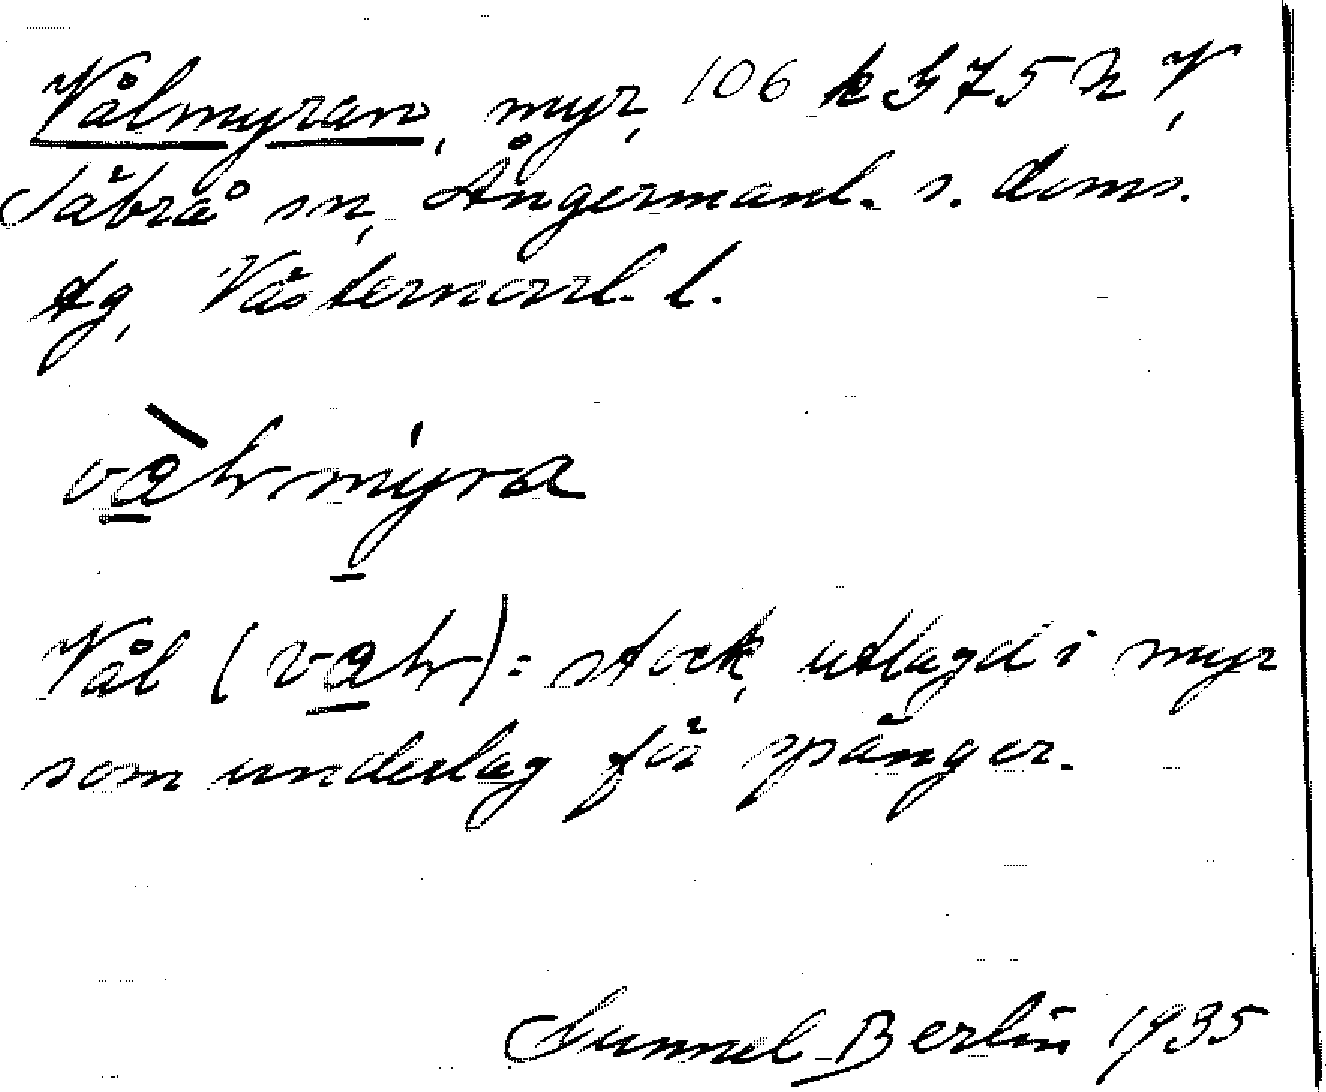 Vålmyran, myr, 106 k 375 n V,
Säbrå sn, Ångermanl. s. doms.
tg, Västernorrl. l.
Vål ( ): stock, utlagd i myr
som underlag för spänger.
Sunnel Berlin 1935